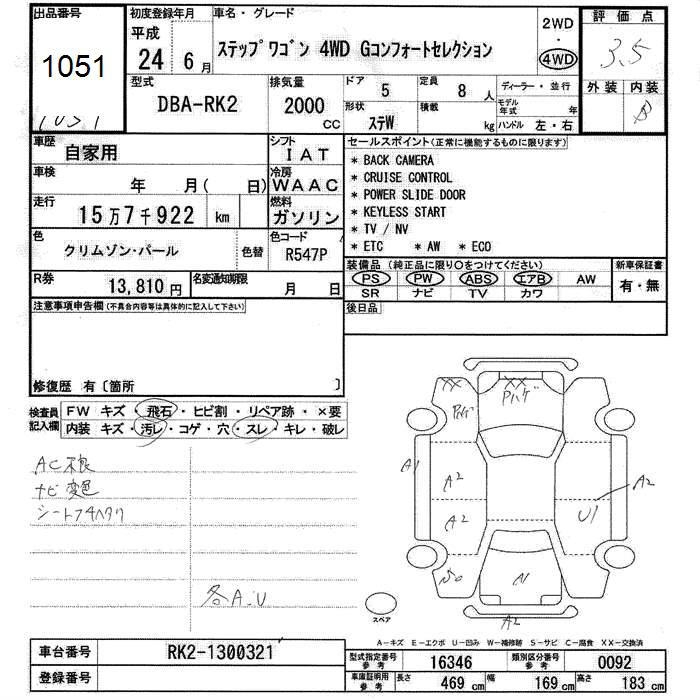 出品番号
1051
初度登録年月
平成
24 6月
車名・グレード
ステップワゴン 4WD Gコンフォートセレクション
2WD
・
4WD
評価点
3.5
外装 内装
B
型式
DBA-RK2
排気量
2000 CC
ドア
5
定員
8 人
ディーラー・並行
形状
ステW
積載
kg
モデル年式 年
ハンドル 左・右
車歴
自家用
シフト
IAT
車検
年 月( 日)
冷房
WAAC
走行
15万7千922 km
燃料
ガソリン
色
クリムゾン・パール
色替
色コード
R547P
R券
13,810 円
名変通知期限
月 日
セールスポイント(正常に機能するものに限ります)
* BACK CAMERA
* CRUISE CONTROL
* POWER SLIDE DOOR
* KEYLESS START
* TV / NV
* ETC * AW * ECO
装備品(純正品に限り○をつけてください)
PS PW ABS エアB AW
SR ナビ TV カワ
新車保証書
有・無
後日品
注意事項申告欄(不具合内容等は具体的に記入して下さい)
修復歴 有〔箇所 〕
検査員記入欄
FW キズ・飛石・ヒビ割・リペア跡・×要
内装 キズ・汚レ・コゲ・穴・スレ・キレ・破レ
AC不良
ナビ変色
シートフチヘタリ
各A.U
XX
XX
Pハゲ
Pハゲ
A1
A2
A2
A2
U1
A2
スペア
A-キズ E-エクボ U-凹み W-補修跡 S-サビ C-腐食 XX-交換済
車台番号
RK2-1300321
登録番号
型式指定番号 参考
16346
類別区分番号 参考
0092
車庫証明用 参考
長さ 469 cm
幅 169 cm
高さ 183 cm